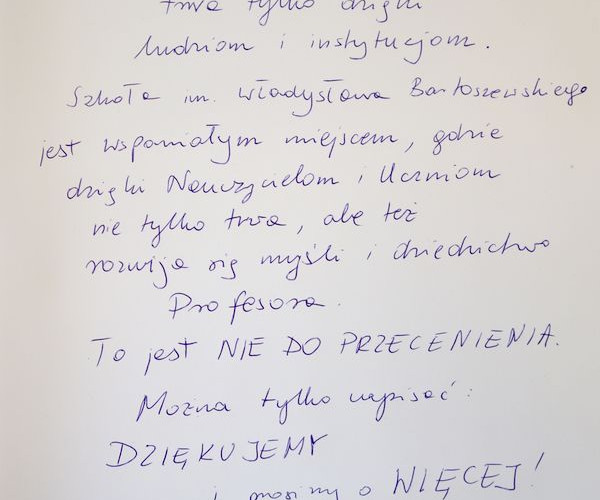 trwa tylko dzięki
ludziom i instytucjom.
Szkoła im. Władysława Bartoszewskiego
jest wspaniałym miejscem, gdzie
dzięki Nauczycielom i Uczniom
nie tylko trwa, ale też
rozwija się myśli i dziedzictwo
Profesora.
To jest NIE DO PRZECENIENIA.
Można tylko napisać:
DZIĘKUJEMY
i prosimy o WIĘCEJ!